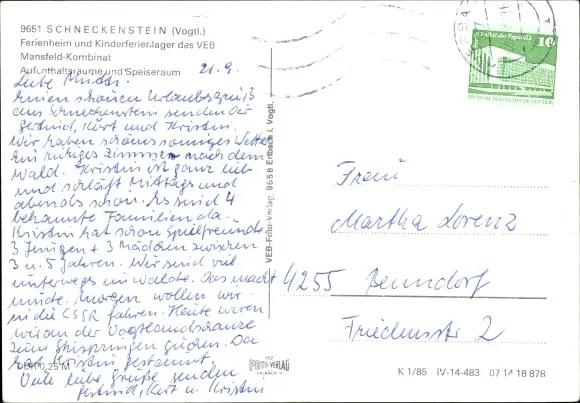 9651 SCHNECKENSTEIN (Vogtl.)
Ferienheim und Kinderferienlager des VEB
Mansfeld-Kombinat
Aufenthaltsräume und Speiseraum
21.9.
Liebe Mutti.
Einen schönen Urlaubsgruß
aus Schneckenstein senden Dir
Gertrud, Kurt und Kristin.
Wir haben schönes sonniges Wetter
Ein ruhiges Zimmer nach dem
Wald. Kristin ist ganz lieb
und schläft Mittags und
abends schon. Es sind 4
bekannte Familien da.
Kristin hat schon Spielfreunde
3 Jungen + 3 Mädchen zwischen
3 u. 5 Jahren. Wir sind viel
unterwegs im Walde. Das macht
müde. Morgen wollen wir
in die CSSR fahren. Heute waren
wir an der Vogtlandschanze
zum Skispringen gucken. Da
hat Kristin gestaunt.
Viele liebe Grüße senden
Gertrud, Kurt u. Kristin
0,25 M
VEB-Foto-Verlag, 9658 Erlbach i. Vogtl.
FOTO VERLAG
Palast der Republik
10
Frau
Martha Lorenz
4255 Benndorf
Friedensstr. 2
K 1/85 IV-14-483 07 14 18 878